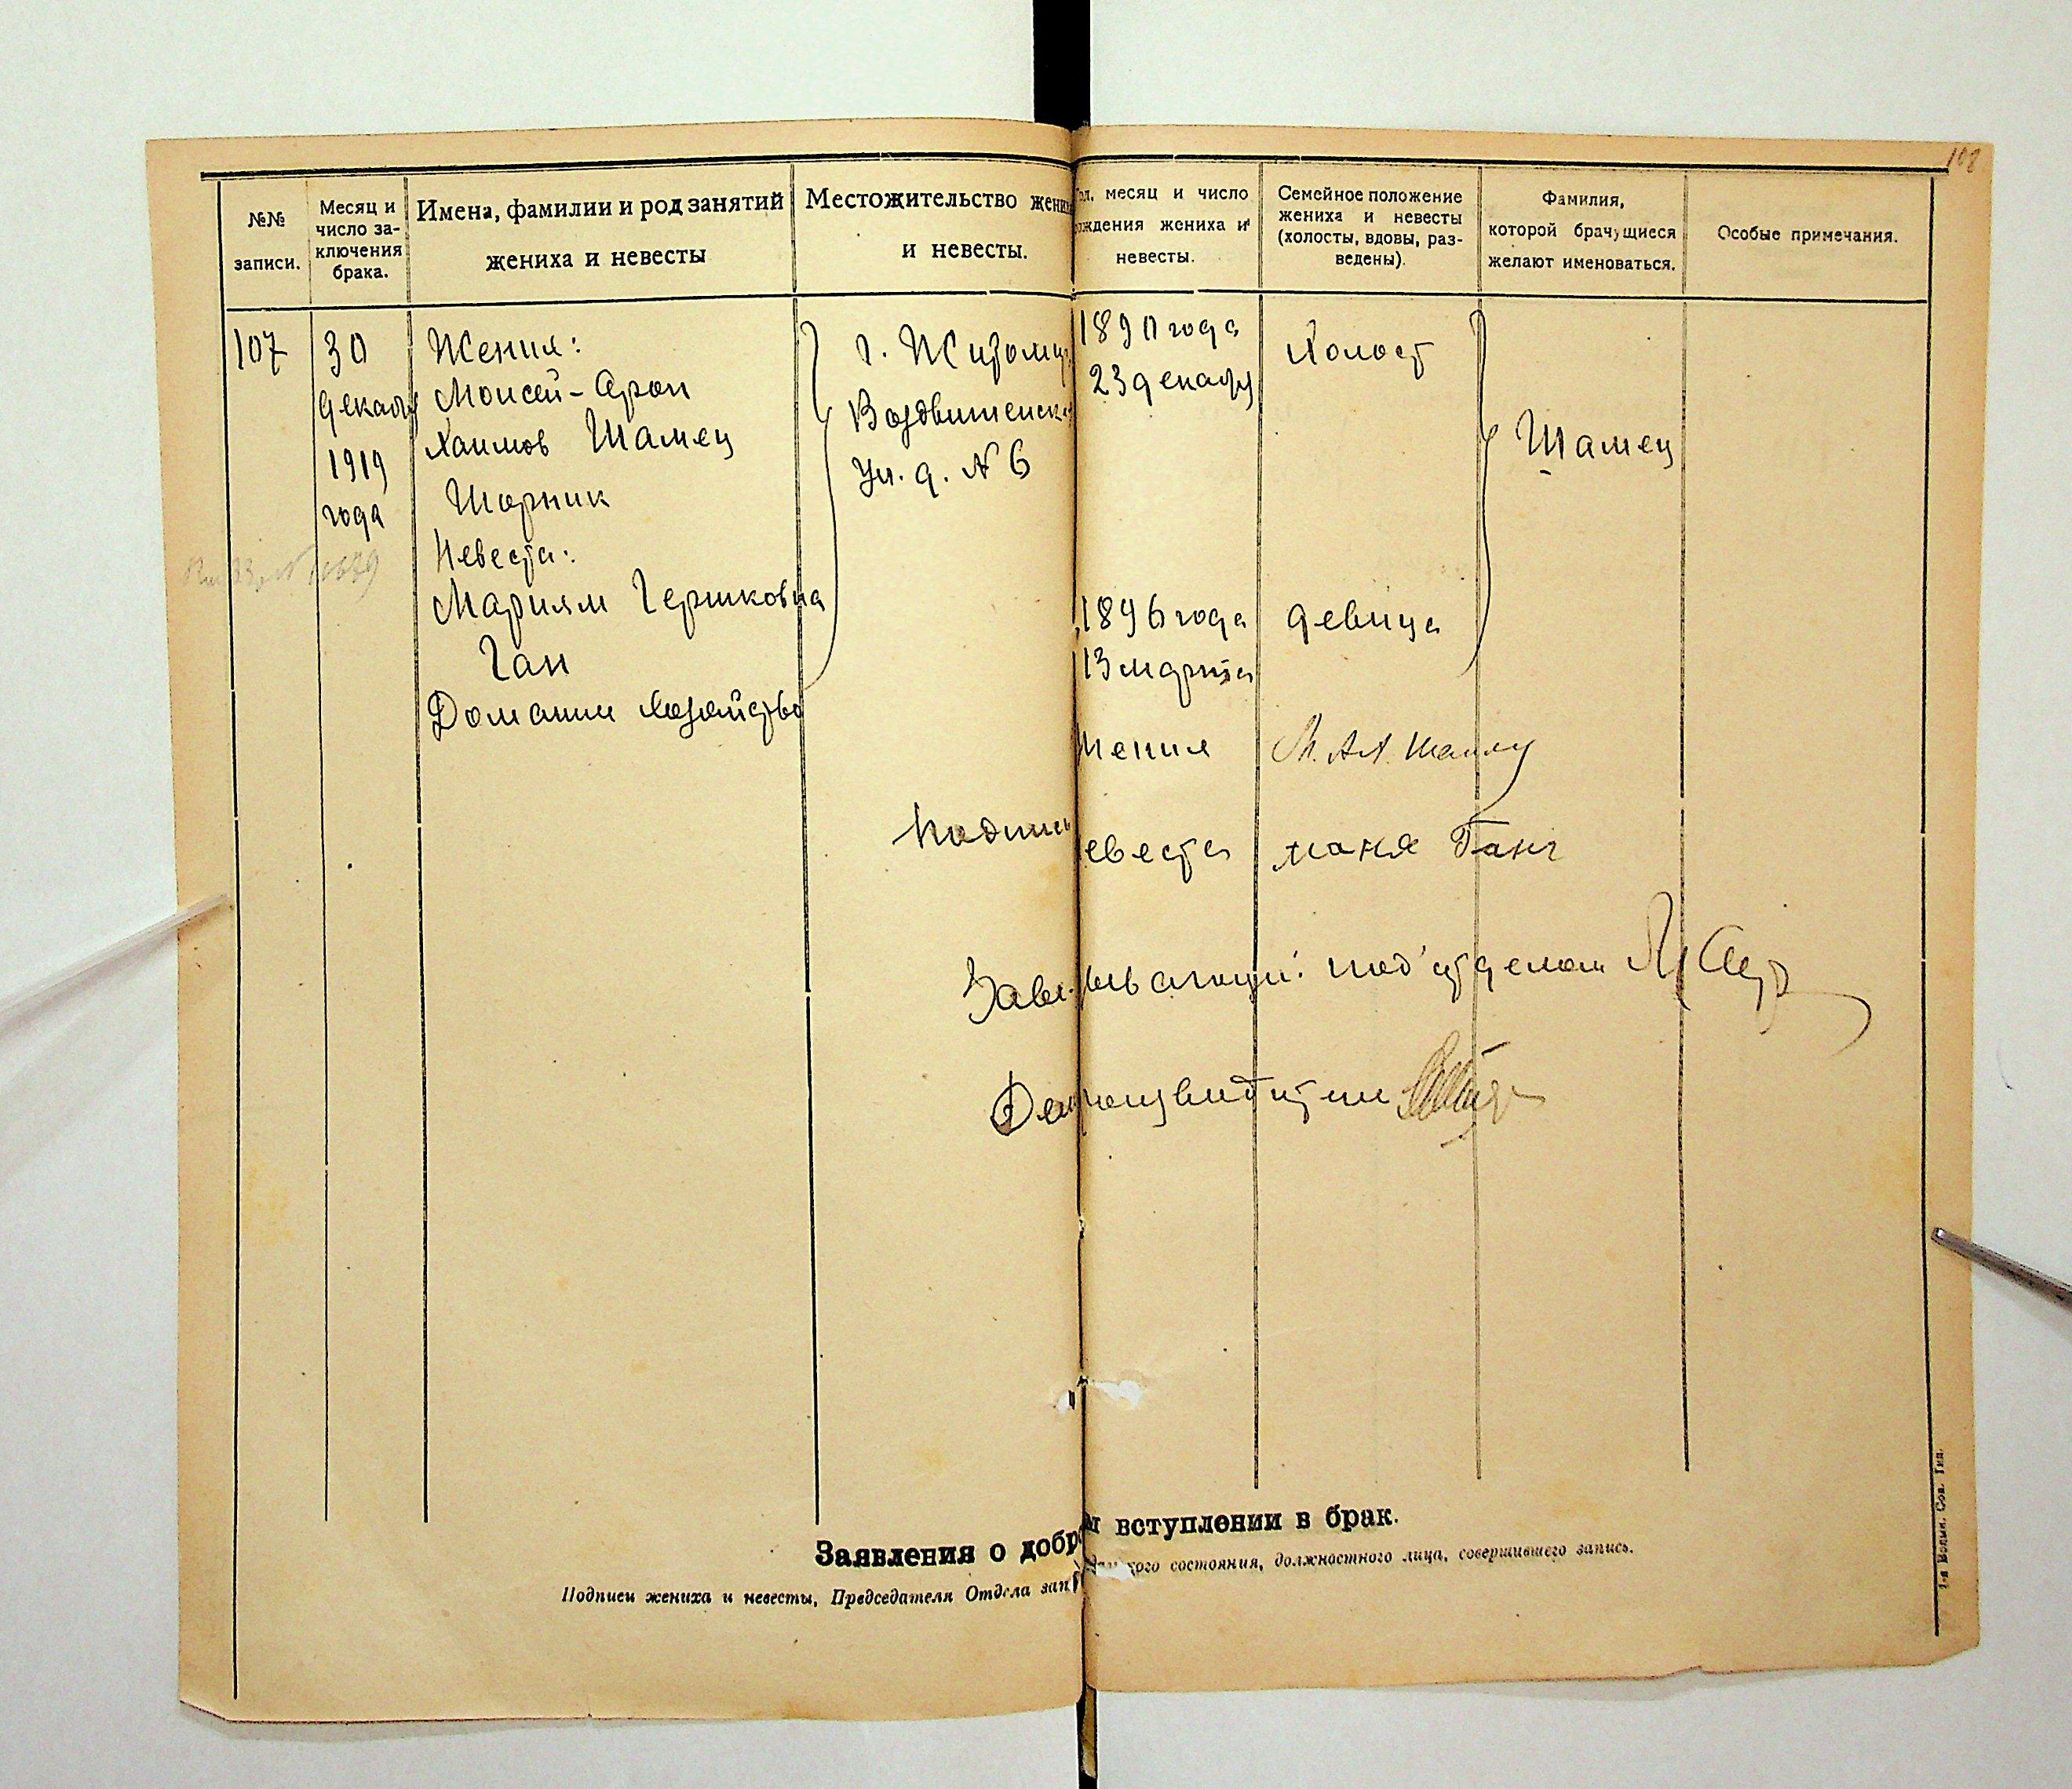 108
№№ записи.
Месяц и число заключения брака.
Имена, фамилии и род занятий
жениха и невесты
Местожительство жених
и невесты.
Год, месяц и число
рождения жениха и
невесты.
Семейное положение
жениха и невесты
(холосты, вдовы, раз-
ведены).
Фамилия,
которой брачущиеся
желают именоваться.
Особые примечания.
107
30
декабря
1919
года
Жених:
Моисей-Арон
Хаимов Шамец
Шорник
Невеста:
Мариям Гершковна
Ган
Домашн хозяйство
г. Житомир
Воздвиженск
ул. д. № 6
1890 года
23 декабря
Холост
Шамец
1896 года
13 марта
девица
Жених
Подписи
евеста
маня Ганг
Заведывающий под'отделом
Делопроизводитель
Заявления о добр м вступлении в брак.
Подписи жениха и невесты, Председателя Отдела зап данского состояния, должностного лица, совершившего запись.
1-я Волын. Сов. Тип.